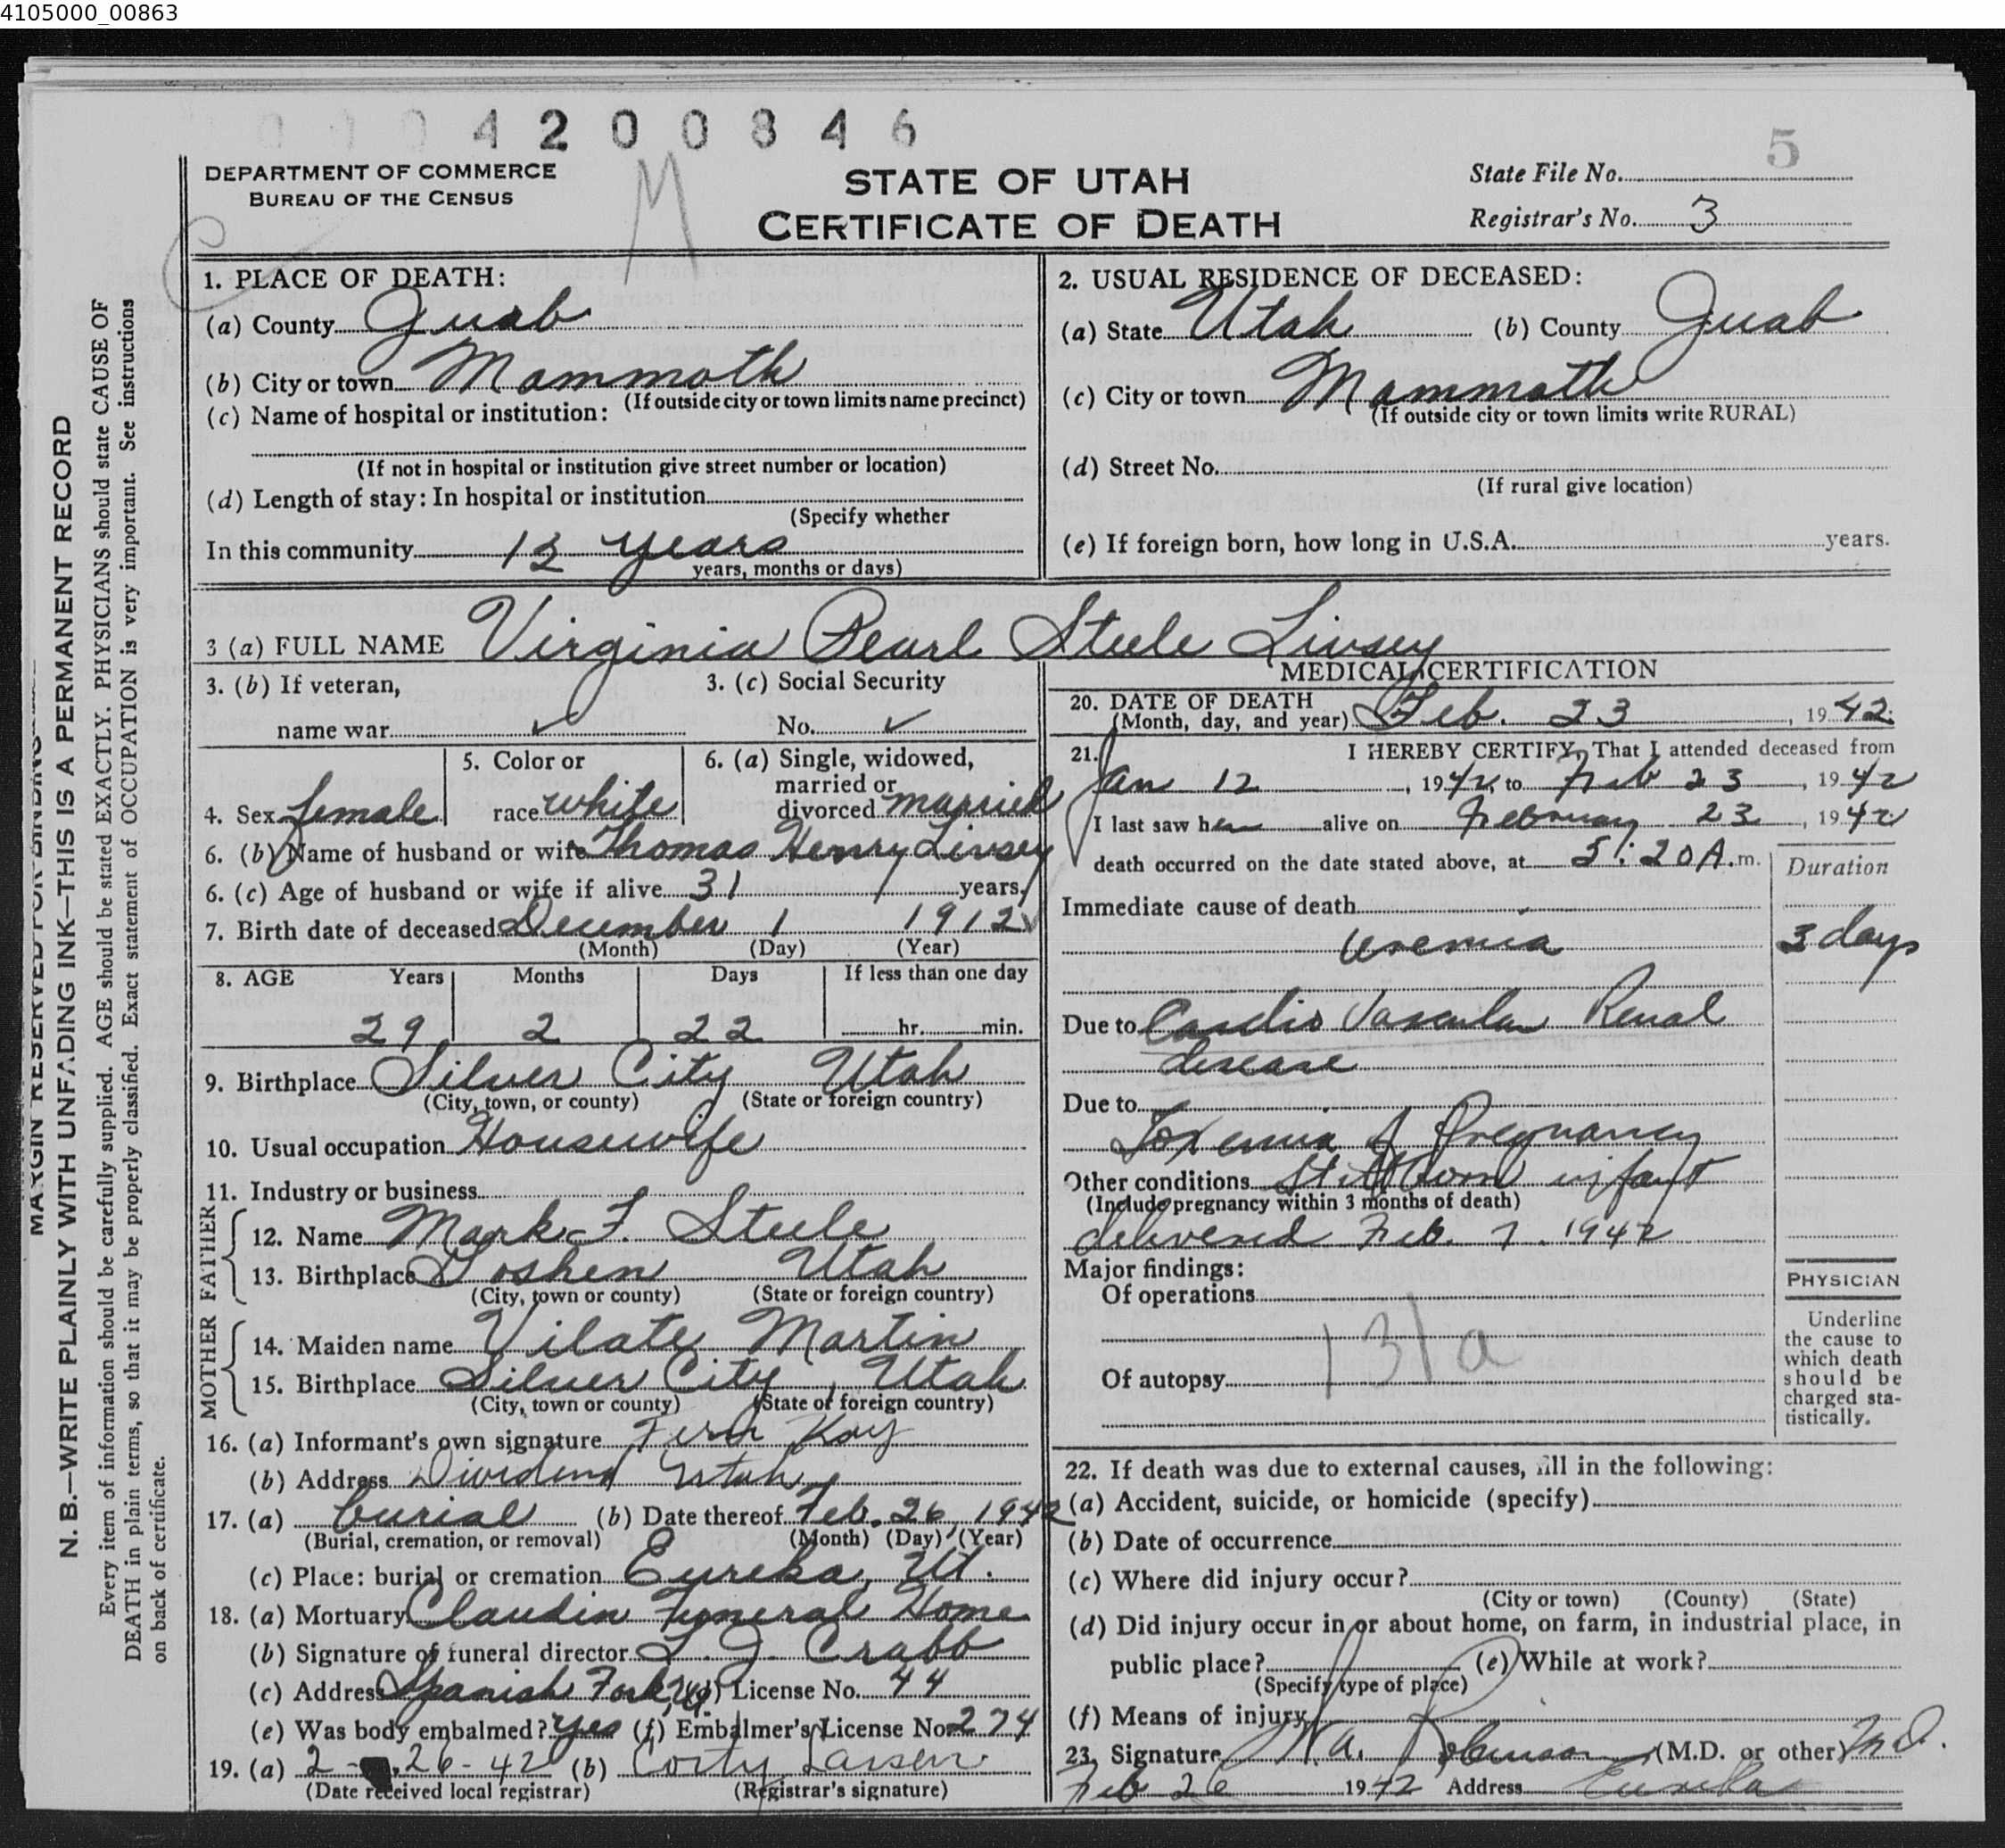 4105000_00863
4 2 0 0 8 4 6
5
M
DEPARTMENT OF COMMERCE
BUREAU OF THE CENSUS
STATE OF UTAH
CERTIFICATE OF DEATH
State File No.
Registrar's No. 3
MARGIN RESERVED FOR BINDING
N. B.—WRITE PLAINLY WITH UNFADING INK—THIS IS A PERMANENT RECORD
Every item of information should be carefully supplied. AGE should be stated EXACTLY. PHYSICIANS should state CAUSE OF
DEATH in plain terms, so that it may be properly classified. Exact statement of OCCUPATION is very important. See instructions
on back of certificate.
1. PLACE OF DEATH:
(a) County Juab
(b) City or town Mammoth
(If outside city or town limits name precinct)
(c) Name of hospital or institution:
(If not in hospital or institution give street number or location)
(d) Length of stay: In hospital or institution
(Specify whether
In this community 12 years
years, months or days)
2. USUAL RESIDENCE OF DECEASED:
(a) State Utah (b) County Juab
(c) City or town Mammoth
(If outside city or town limits write RURAL)
(d) Street No.
(If rural give location)
(e) If foreign born, how long in U.S.A. years.
3 (a) FULL NAME Virginia Pearl Steele Livsey
3. (b) If veteran,
name war ✓
3. (c) Social Security
No. ✓
4. Sex female
5. Color or
race white
6. (a) Single, widowed,
married or
divorced married
6. (b) Name of husband or wife Thomas Henry Livsey
6. (c) Age of husband or wife if alive 31 years.
7. Birth date of deceased December 1 1912
(Month) (Day) (Year)
8. AGE Years Months Days If less than one day
29 2 22 hr. min.
9. Birthplace Silver City Utah
(City, town, or county) (State or foreign country)
10. Usual occupation Housewife
11. Industry or business
FATHER
12. Name Mark F. Steele
13. Birthplace Goshen Utah
(City, town or county) (State or foreign country)
MOTHER
14. Maiden name Vilate Martin
15. Birthplace Silver City, Utah
(City, town or county) (State or foreign country)
16. (a) Informant's own signature Fern Kay
(b) Address Dividend Utah
17. (a) burial (b) Date thereof Feb. 26, 1942
(Burial, cremation, or removal) (Month) (Day) (Year)
(c) Place: burial or cremation Eureka, Ut.
18. (a) Mortuary Claudin Funeral Home
(b) Signature of funeral director L. J. Crabb
(c) Address Spanish Fork, Ut. (d) License No. 44
(e) Was body embalmed? Yes (f) Embalmer's License No. 274
19. (a) 2-26-42 (b) Corty Larsen
(Date received local registrar) (Registrar's signature)
MEDICAL CERTIFICATION
20. DATE OF DEATH
(Month, day, and year) Feb. 23, 1942
21. I HEREBY CERTIFY, That I attended deceased from
Jan 12, 1942 to Feb 23, 1942
I last saw her alive on February 23, 1942
death occurred on the date stated above, at 5:20 A.m.
Duration
Immediate cause of death
Uremia 3 days
Due to Cardio Vascular Renal
disease
Due to
Toxemia of Pregnancy
Other conditions Stillborn infant
(Include pregnancy within 3 months of death)
delivered Feb. 7. 1942
Major findings:
Of operations
131a
Of autopsy
PHYSICIAN
Underline
the cause to
which death
should be
charged sta-
tistically.
22. If death was due to external causes, fill in the following:
(a) Accident, suicide, or homicide (specify)
(b) Date of occurrence
(c) Where did injury occur?
(City or town) (County) (State)
(d) Did injury occur in or about home, on farm, in industrial place, in
public place? (e) While at work?
(Specify type of place)
(f) Means of injury
23. Signature (M.D. or other) M.D.
Feb 26 1942 Address Eureka